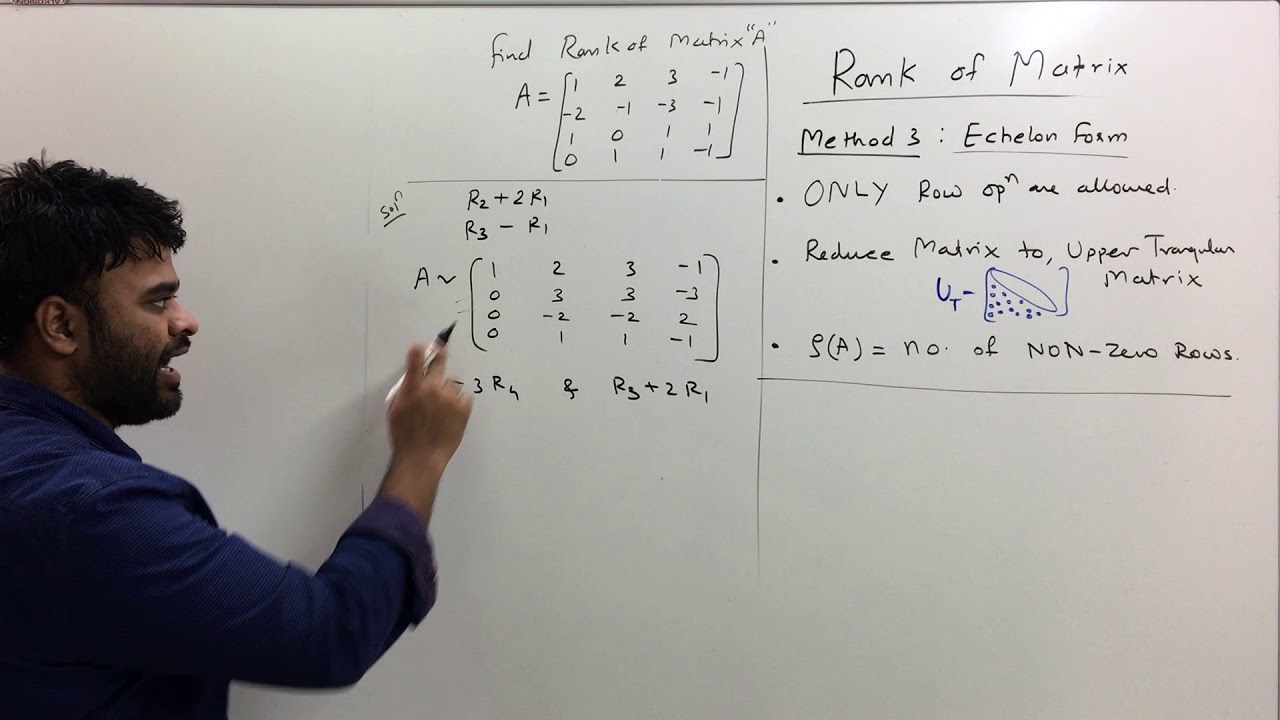 find Rank of Matrix "A"
A = [1 2 3 -1
-2 -1 -3 -1
1 0 1 1
0 1 1 -1]
Solⁿ
R₂ + 2R₁
R₃ - R₁
A ~ [1 2 3 -1
0 3 3 -3
0 -2 -2 2
0 1 1 -1]
- 3R₄ & R₃ + 2R₁
Rank of Matrix
Method 3 : Echelon Form
• ONLY Row opⁿ are allowed.
• Reduce Matrix to, Upper Trangular
Matrix
U_T - [ ]
• ρ(A) = no. of NON-Zero Rows.